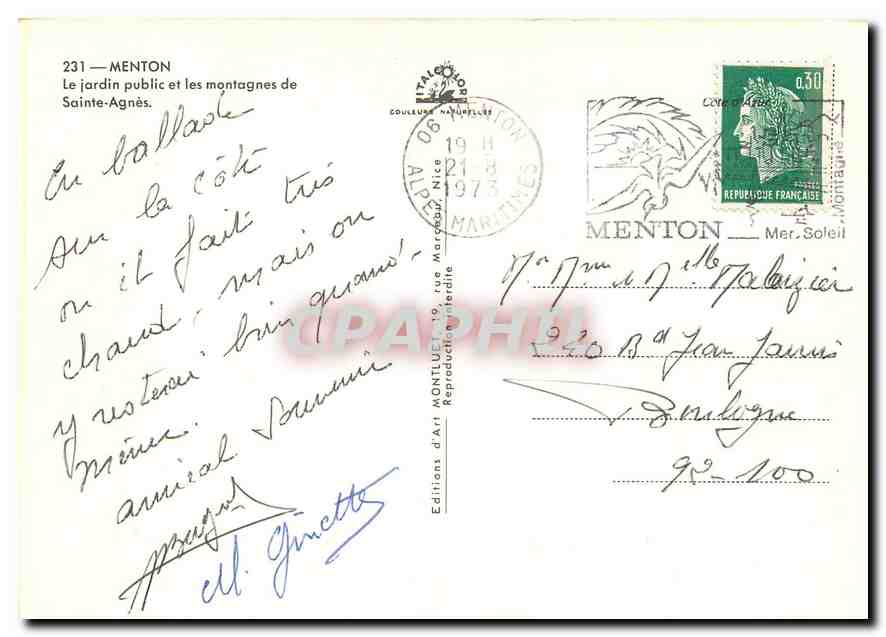 231 — MENTON
Le jardin public et les montagnes de
Sainte-Agnès.
En ballade
sur la côte
ou il fait très
chaud, mais on
y resterai bien quand-
même.
amical souvenir
M. Ginette
ITALCOLOR
COULEURS NATURELLES
Editions d'Art MONTLUET, 19, rue Marceau, Nice
Reproduction interdite
06 MENTON
19 H
21-8
1973
ALPES MARITIMES
Côte d'Azur
MENTON
Mer. Soleil
Montagne
0,30
POSTES
REPUBLIQUE FRANÇAISE
Mr Mme et Melle
220 Bd Jean Jaurès
Boulogne
92-100
CPAPHIL